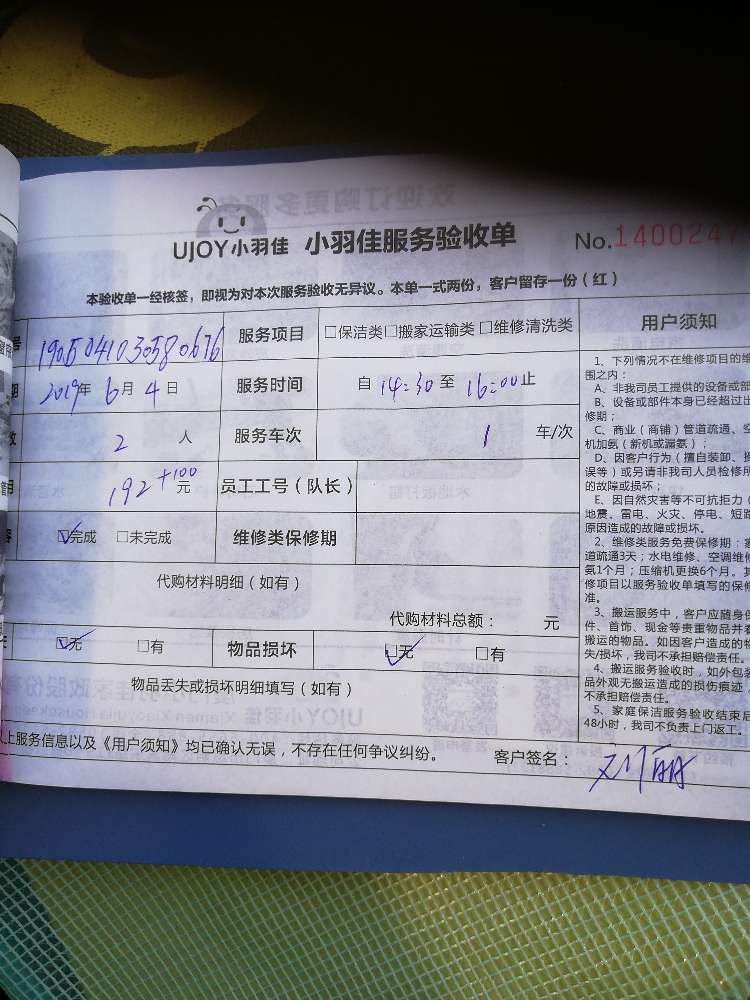 UJOY小羽佳 小羽佳服务验收单 No.1400247
本验收单一经核签，即视为对本次服务验收无异议。本单一式两份，客户留存一份（红）
号 服务项目 □保洁类□搬家运输类□维修清洗类
期 2019年6月4日 服务时间 自14:30至16:00止
数 2人 服务车次 1 车/次
费用 192+100元 员工工号（队长）
容 ☑完成 □未完成 维修类保修期
代购材料明细（如有）
代购材料总额： 元
失 ☑无 □有 物品损坏 ☑无 □有
物品丢失或损坏明细填写（如有）
以上服务信息以及《用户须知》均已确认无误，不存在任何争议纠纷。
客户签名：
用户须知
1、下列情况不在维修项目的维
围之内：
A、非我司员工提供的设备或部
B、设备或部件本身已经超过出
修期；
C、商业（商铺）管道疏通、空
机加氨（新机或漏氨）；
D、因客户行为（擅自装卸、操
误等）或另请非我司人员检修所
的故障或损坏；
E、因自然灾害等不可抗拒力（
地震、雷电、火灾、停电、短路
原因造成的故障或损坏。
2、维修类服务免费保修期：家
道疏通3天；水电维修、空调维修
氨1个月；压缩机更换6个月。其
修项目以服务验收单填写的保修
准。
3、搬运服务中，客户应随身保
件、首饰、现金等贵重物品并看
搬运的物品。如因客户造成的物
失/损坏，我司不承担赔偿责任。
4、搬运服务验收时，如外包装
品外观无搬运造成的损伤痕迹，
不承担赔偿责任。
5、家庭保洁服务验收结束后
48小时，我司不负责上门返工。